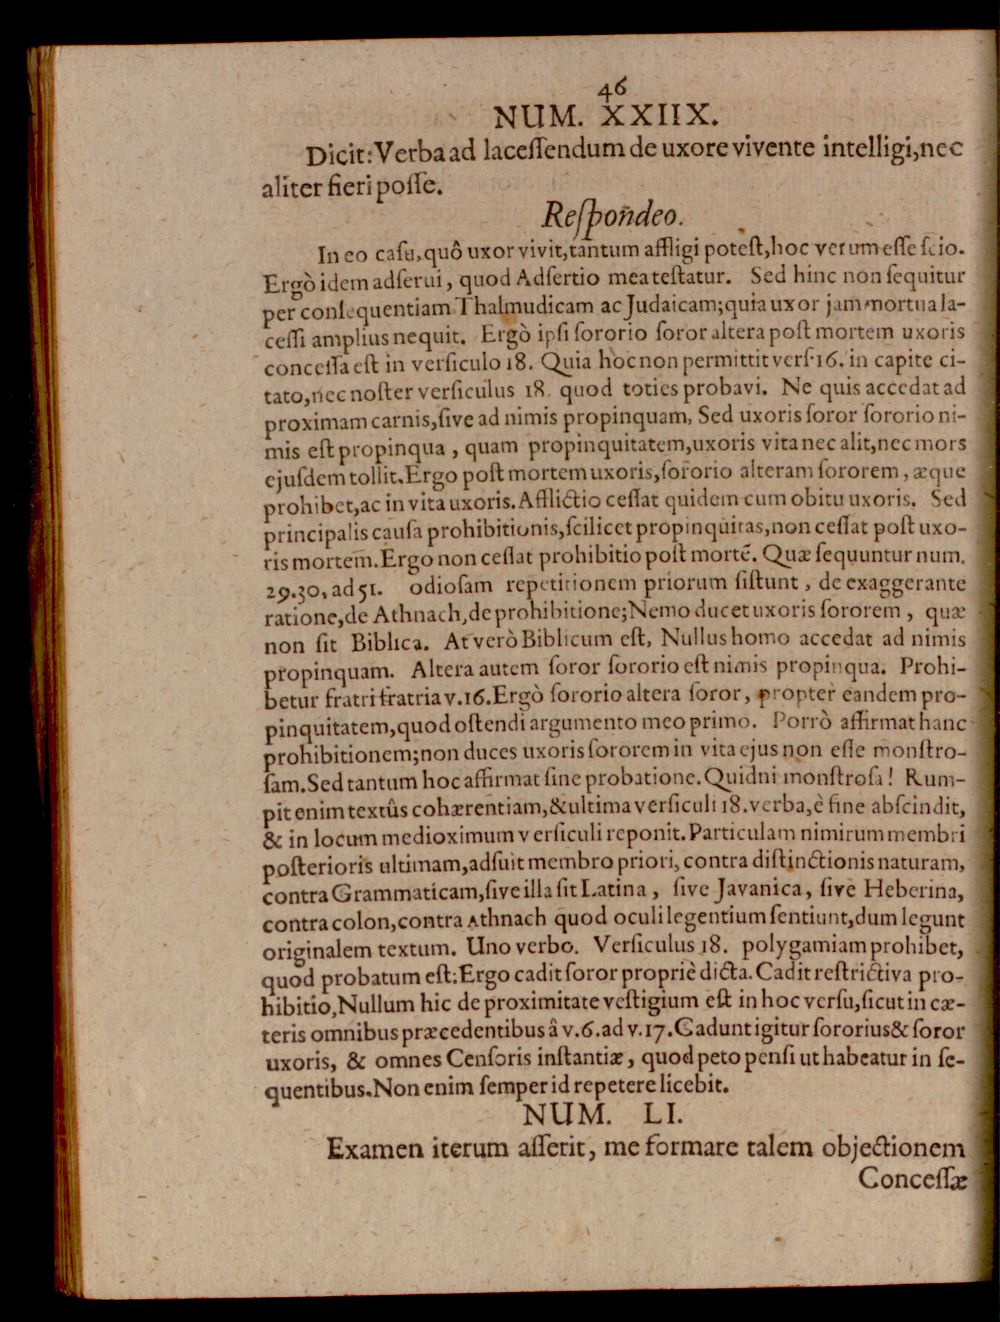 46
NUM. XXIIX.
Dicit: Verba ad laceſſendum de uxore vivente intelligi, nec
aliter fieri poſſe.
Reſpondeo.
In eo caſu, quô uxor vivit, tantum affligi poteſt, hoc verum eſſe ſcio.
Ergò idem adſerui, quod Adſertio mea teſtatur. Sed hinc non ſequitur
per conſequentiam Thalmudicam ac Judaicam; quia uxor jam mortua la-
ceſſi amplius nequit. Ergò ipſi ſororio ſoror altera poſt mortem uxoris
conceſſa eſt in verſiculo 18. Quia hoc non permittit verſ 16. in capite ci-
tato, nec noſter verſiculus 18. quod toties probavi. Ne quis accedat ad
proximam carnis, ſive ad nimis propinquam, Sed uxoris ſoror ſororio ni-
mis eſt propinqua, quam propinquitatem, uxoris vita nec alit, nec mors
ejuſdem tollit. Ergo poſt mortem uxoris, ſororio alteram ſororem, æque
prohibet, ac in vita uxoris. Afflictio ceſſat quidem cum obitu uxoris. Sed
principalis cauſa prohibitionis, ſcilicet propinquitas, non ceſſat poſt uxo-
ris mortem. Ergo non ceſſat prohibitio poſt mortẽ. Quæ ſequuntur num.
29.30, ad 51. odioſam repetitionem priorum ſiſtunt, de exaggerante
ratione, de Athnach, de prohibitione; Nemo ducet uxoris ſororem, quæ
non ſit Biblica. At verò Biblicum eſt, Nullus homo accedat ad nimis
propinquam. Altera autem ſoror ſororio eſt nimis propinqua. Prohi-
betur fratri fratria v.16. Ergò ſororio altera ſoror, propter eandem pro-
pinquitatem, quod oſtendi argumento meo primo. Porrò affirmat hanc
prohibitionem; non duces uxoris ſororem in vita ejus non eſſe monſtro-
ſam. Sed tantum hoc affirmat ſine probatione. Quidni monſtroſa! Rum-
pit enim textûs cohærentiam, & ultima verſiculi 18. verba, è fine abſcindit,
& in locum medioximum verſiculi reponit. Particulam nimirum membri
poſterioris ultimam, adſuit membro priori, contra diſtinctionis naturam,
contra Grammaticam, ſive illa ſit Latina, ſive Javanica, ſive Heberina,
contra colon, contra Athnach quod oculi legentium ſentiunt, dum legunt
originalem textum. Uno verbo. Verſiculus 18. polygamiam prohibet,
quod probatum eſt: Ergo cadit ſoror propriè dicta. Cadit reſtrictiva pro-
hibitio, Nullum hic de proximitate veſtigium eſt in hoc verſu, ſicut in cæ-
teris omnibus præcedentibus â v.6. ad v.17. Gadunt igitur ſororius & ſoror
uxoris, & omnes Cenſoris inſtantiæ, quod peto penſi ut habeatur in ſe-
quentibus. Non enim ſemper id repetere licebit.
NUM. LI.
Examen iterum aſſerit, me formare talem objectionem
Conceſſæ